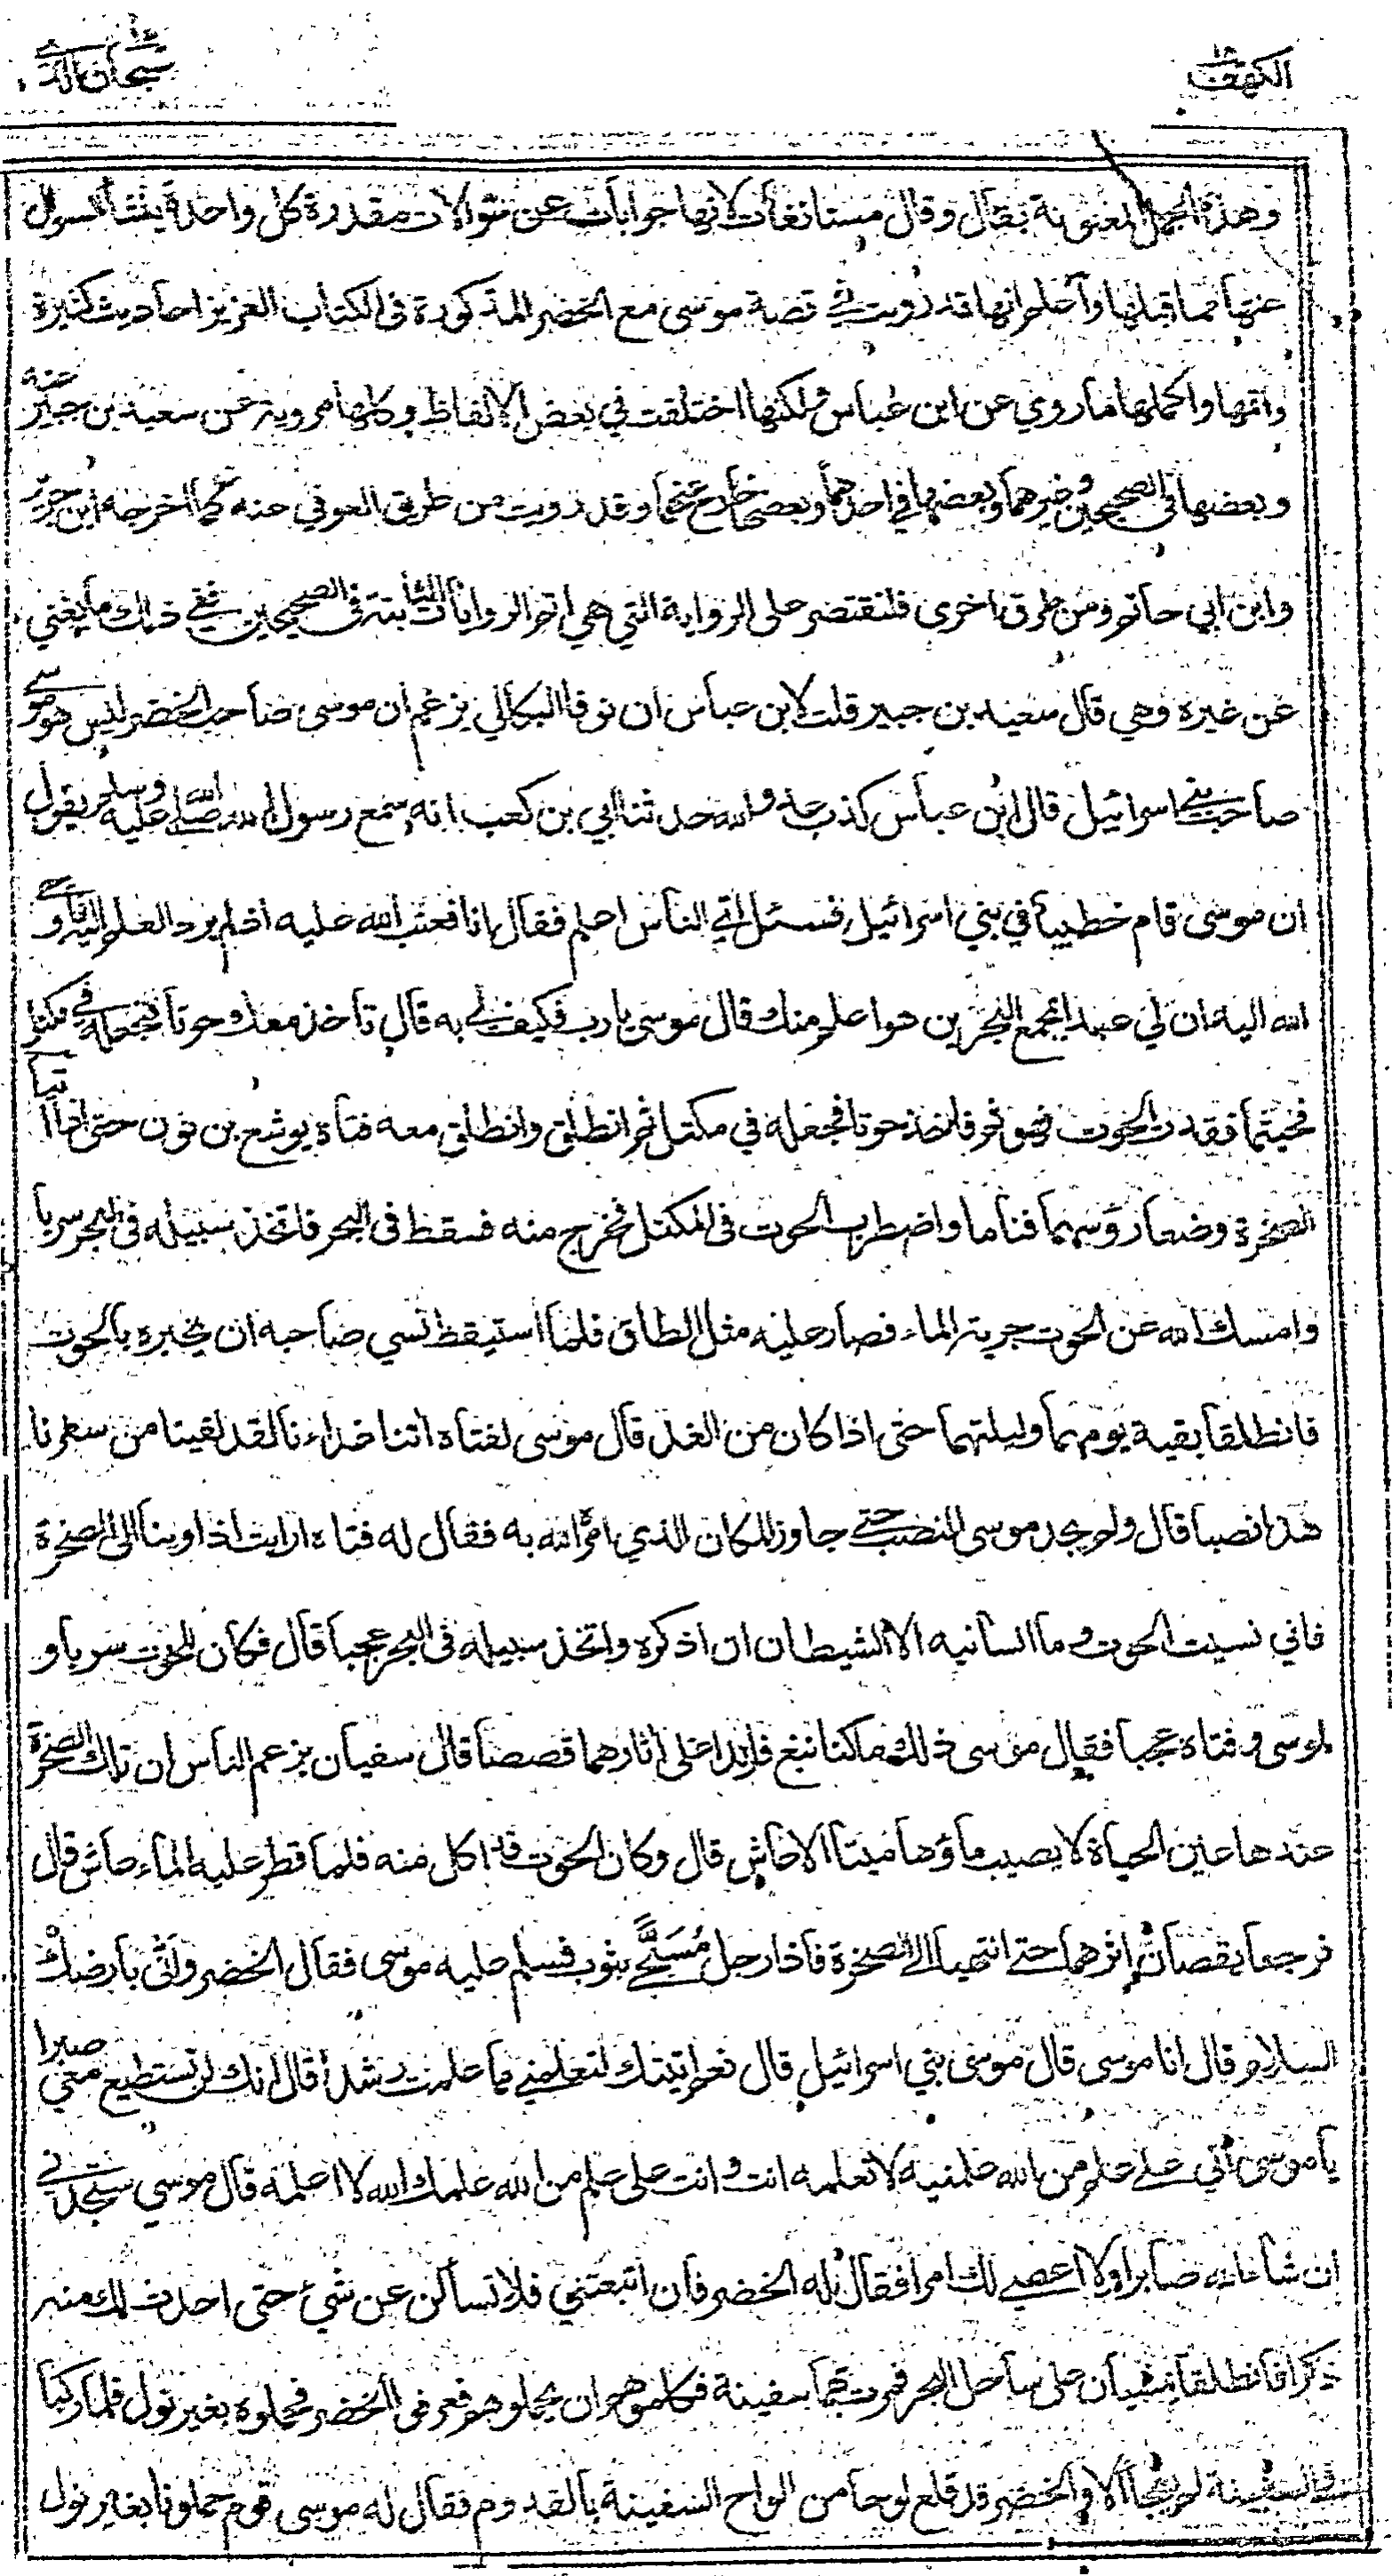 الكهف ١٨
سبحان الذي ١٥
وهذه الجمل المعنونة بقال وقال مستانفات لانها جوابات عن سؤالات مقدرة كل واحدة ينشأ السوال
عنها مما قبلها واعلم انها قد رويت في قصة موسى مع الخضر المذكورة في الكتاب العزيز احاديث كثيرة
واتمها واكملها ما روي عن ابن عباس ولكنها اختلفت في بعض الالفاظ وكلها مروية عن سعيد بن جبير عنه
وبعضها في الصحيحين وغيرهما وبعضها في احدهما وبعضها خارج عنهما وقد رويت من طريق العوفي عنه كما اخرجه ابن جرير
وابن ابي حاتم ومن طرق اخرى فلنقتصر على الرواية التي هي اتم الروايات الثابتة في الصحيحين ففي ذلك ما يغني
عن غيره وهي قال سعيد بن جبير قلت لابن عباس ان نوفا البكالي يزعم ان موسى صاحب الخضر ليس هو موسى
صاحب بني اسرائيل قال ابن عباس كذب عدو الله حدثنا ابي بن كعب انه سمع رسول الله صلى الله عليه وسلم يقول
ان موسى قام خطيبا في بني اسرائيل فسئل اي الناس اعلم فقال انا فعتب الله عليه اذ لم يرد العلم اليه فاوحى
الله اليه ان لي عبدا بمجمع البحرين هو اعلم منك قال موسى يا رب فكيف لي به قال تاخذ معك حوتا تجعله في مكتل
فحيثما فقدت الحوت فهو ثم فاخذ حوتا فجعله في مكتل ثم انطلق وانطلق معه فتاه يوشع بن نون حتى اذا اتيا
الصخرة وضعا رؤسهما فناما واضطرب الحوت في المكتل فخرج منه فسقط في البحر فاتخذ سبيله في البحر سربا
وامسك الله عن الحوت جرية الماء فصار عليه مثل الطاق فلما استيقظ نسي صاحبه ان يخبره بالحوت
فانطلقا بقية يومهما وليلتهما حتى اذا كان من الغد قال موسى لفتاه اتنا غداءنا لقد لقينا من سفرنا
هذا نصبا قال ولم يجد موسى النصب حتى جاوز المكان الذي امر الله به فقال له فتاه ارايت اذ اوينا الى الصخرة
فاني نسيت الحوت وما انسانيه الا الشيطان ان اذكره واتخذ سبيله في البحر عجبا قال فكان للحوت سربا و
لموسى وفتاه عجبا فقال موسى ذلك ما كنا نبغ فارتدا على اثارهما قصصا قال سفيان يزعم الناس ان تلك الصخرة
عندها عين الحياة لا يصيب ماؤها ميتا الا عاش قال وكان الحوت قد اكل منه فلما قطر عليه الماء عاش قال
فرجعا يقصان اثرهما حتى انتهيا الى الصخرة فاذا رجل مُسَجًّى بثوب فسلم عليه موسى فقال الخضر وانى بارضك
السلام قال انا موسى قال موسى بني اسرائيل قال نعم اتيتك لتعلمني مما علمت رشدا قال انك لن تستطيع معي صبرا
يا موسى اني على علم من الله علمنيه لا تعلمه انت وانت على علم من الله علمك الله لا اعلمه قال موسى ستجدني
ان شاء الله صابرا ولا اعصي لك امرا فقال له الخضر فان اتبعتني فلا تسألن عن شيء حتى احدث لك منه
ذكرا فانطلقا يمشيان على ساحل البحر فمرت بهما سفينة فكلموهم ان يحملوهم فعرفوا الخضر فحملوه بغير نول فلما ركبا
في السفينة لم يفجأ الا والخضر قد قلع لوحا من الواح السفينة بالقدوم فقال له موسى قوم حملونا بغير نول